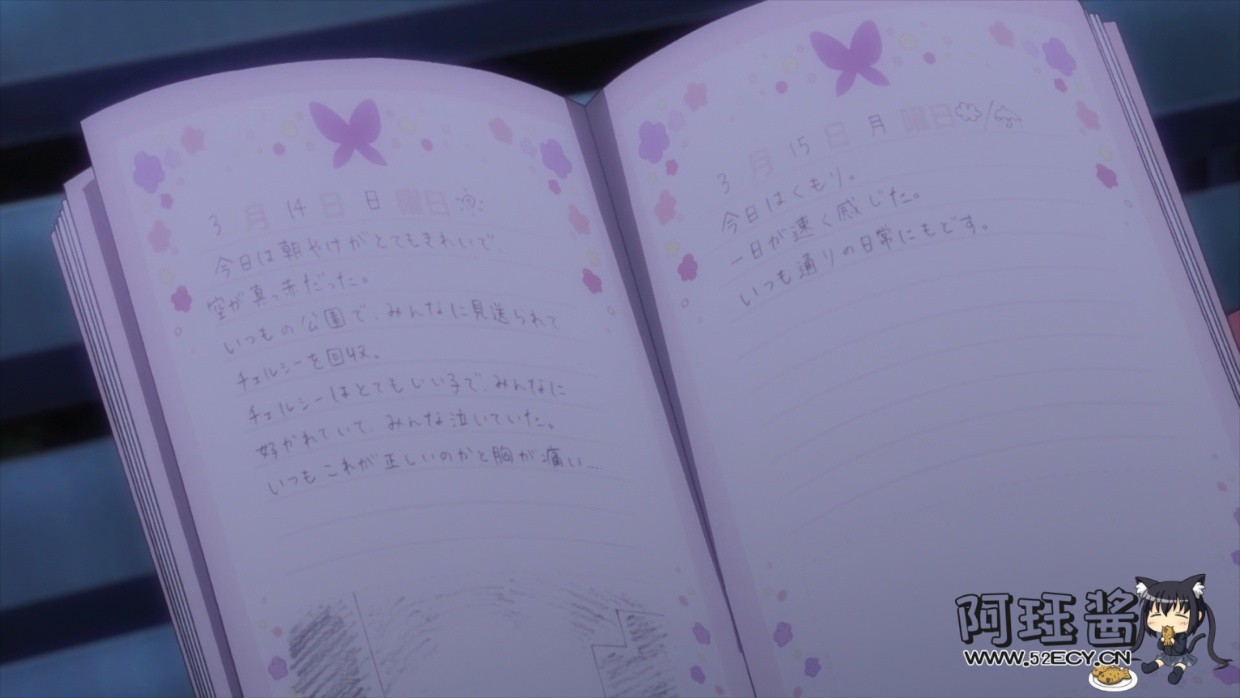 3月14日 日 曜日
今日は朝やけがとてもきれいで、
空が真っ赤だった。
いつもの公園で、みんなに見送られて
チェルシーを回収。
チェルシーはとてもいい子で、みんなに
好かれていて、みんな泣いていた。
いつもこれが正しいのかと胸が痛い…
3月15日 月 曜日 /
今日はくもり。
一日が速く感じた。
いつも通りの日常にもどす。
阿珏酱
WWW.52ECY.CN